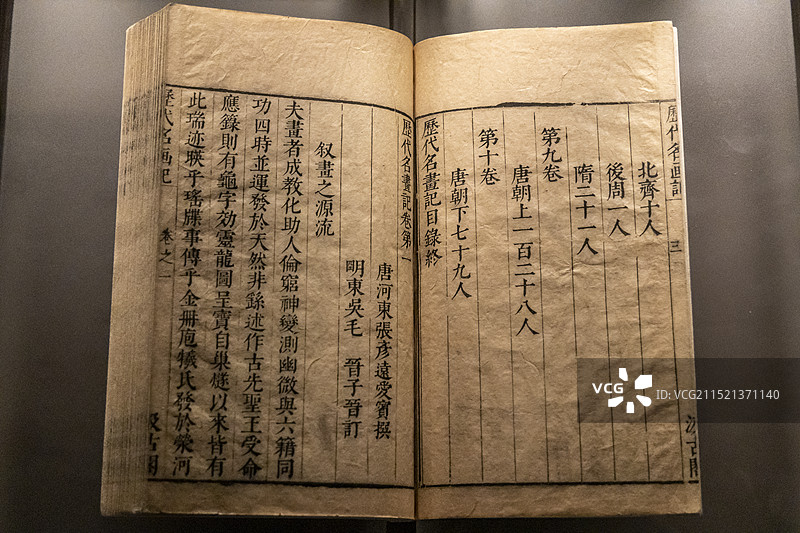 歷代名畫記
三
北齊十人
後周一人
隋二十一人
第九卷
唐朝上一百二十八人
第十卷
唐朝下七十九人
歷代名畫記目錄終
歷代名畫記卷第一
唐河東張彥遠愛賓撰
明東吳毛 晉子晉訂
叙畫之源流
夫畫者成教化助人倫窮神變測幽微與六籍同
功四時並運發於天然非繇述作古先聖王受命
應籙則有龜字効靈龍圖呈寶自巢燧以來皆有
此瑞迹暎乎瑤牒事傳乎金冊庖犧氏發於滎河
歷代名画記
卷之一
汲古閣
汲古閣
VCG
ID: VCG211521371140